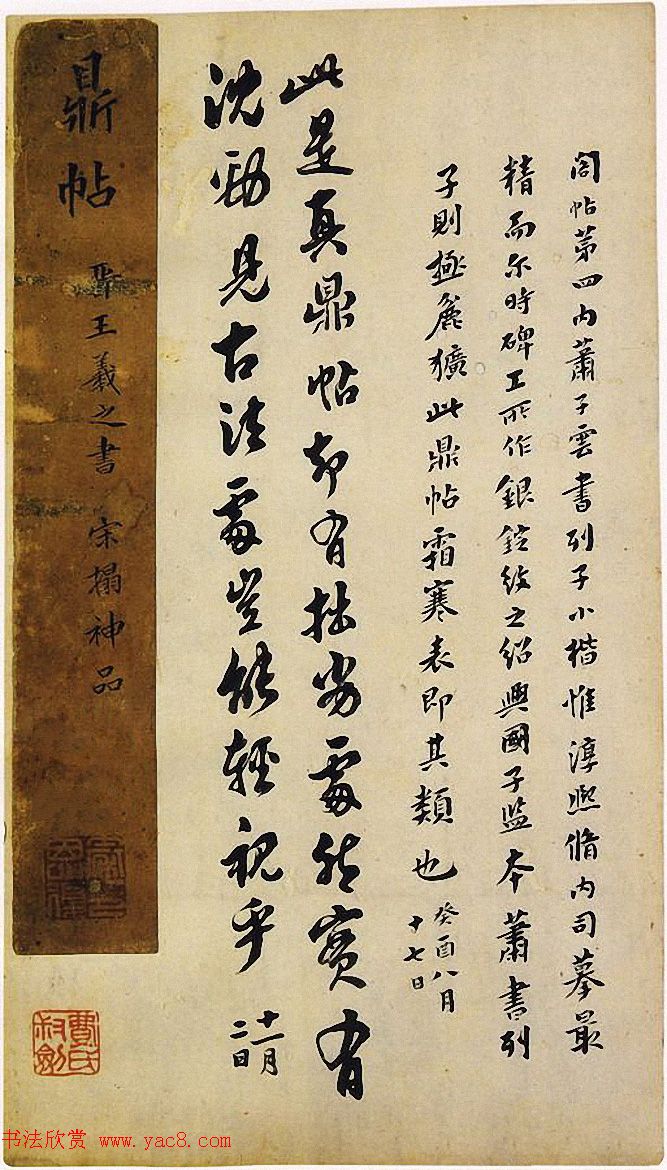 閣帖第四内蕭子雲書列子小楷惟淳熙脩内司摹最
精而尔時碑工所作銀錠紋之紹興國子监本蕭書列
子則極麄獷此鼎帖霜寒表即其類也
癸酉八月
十七日
此是真鼎帖却有拙劣處然實有
沈勁見古法處豈能輕視乎
十一月
二日
鼎帖
晉王羲之書 宋搨神品
費氏
书法欣赏 www.yac8.com